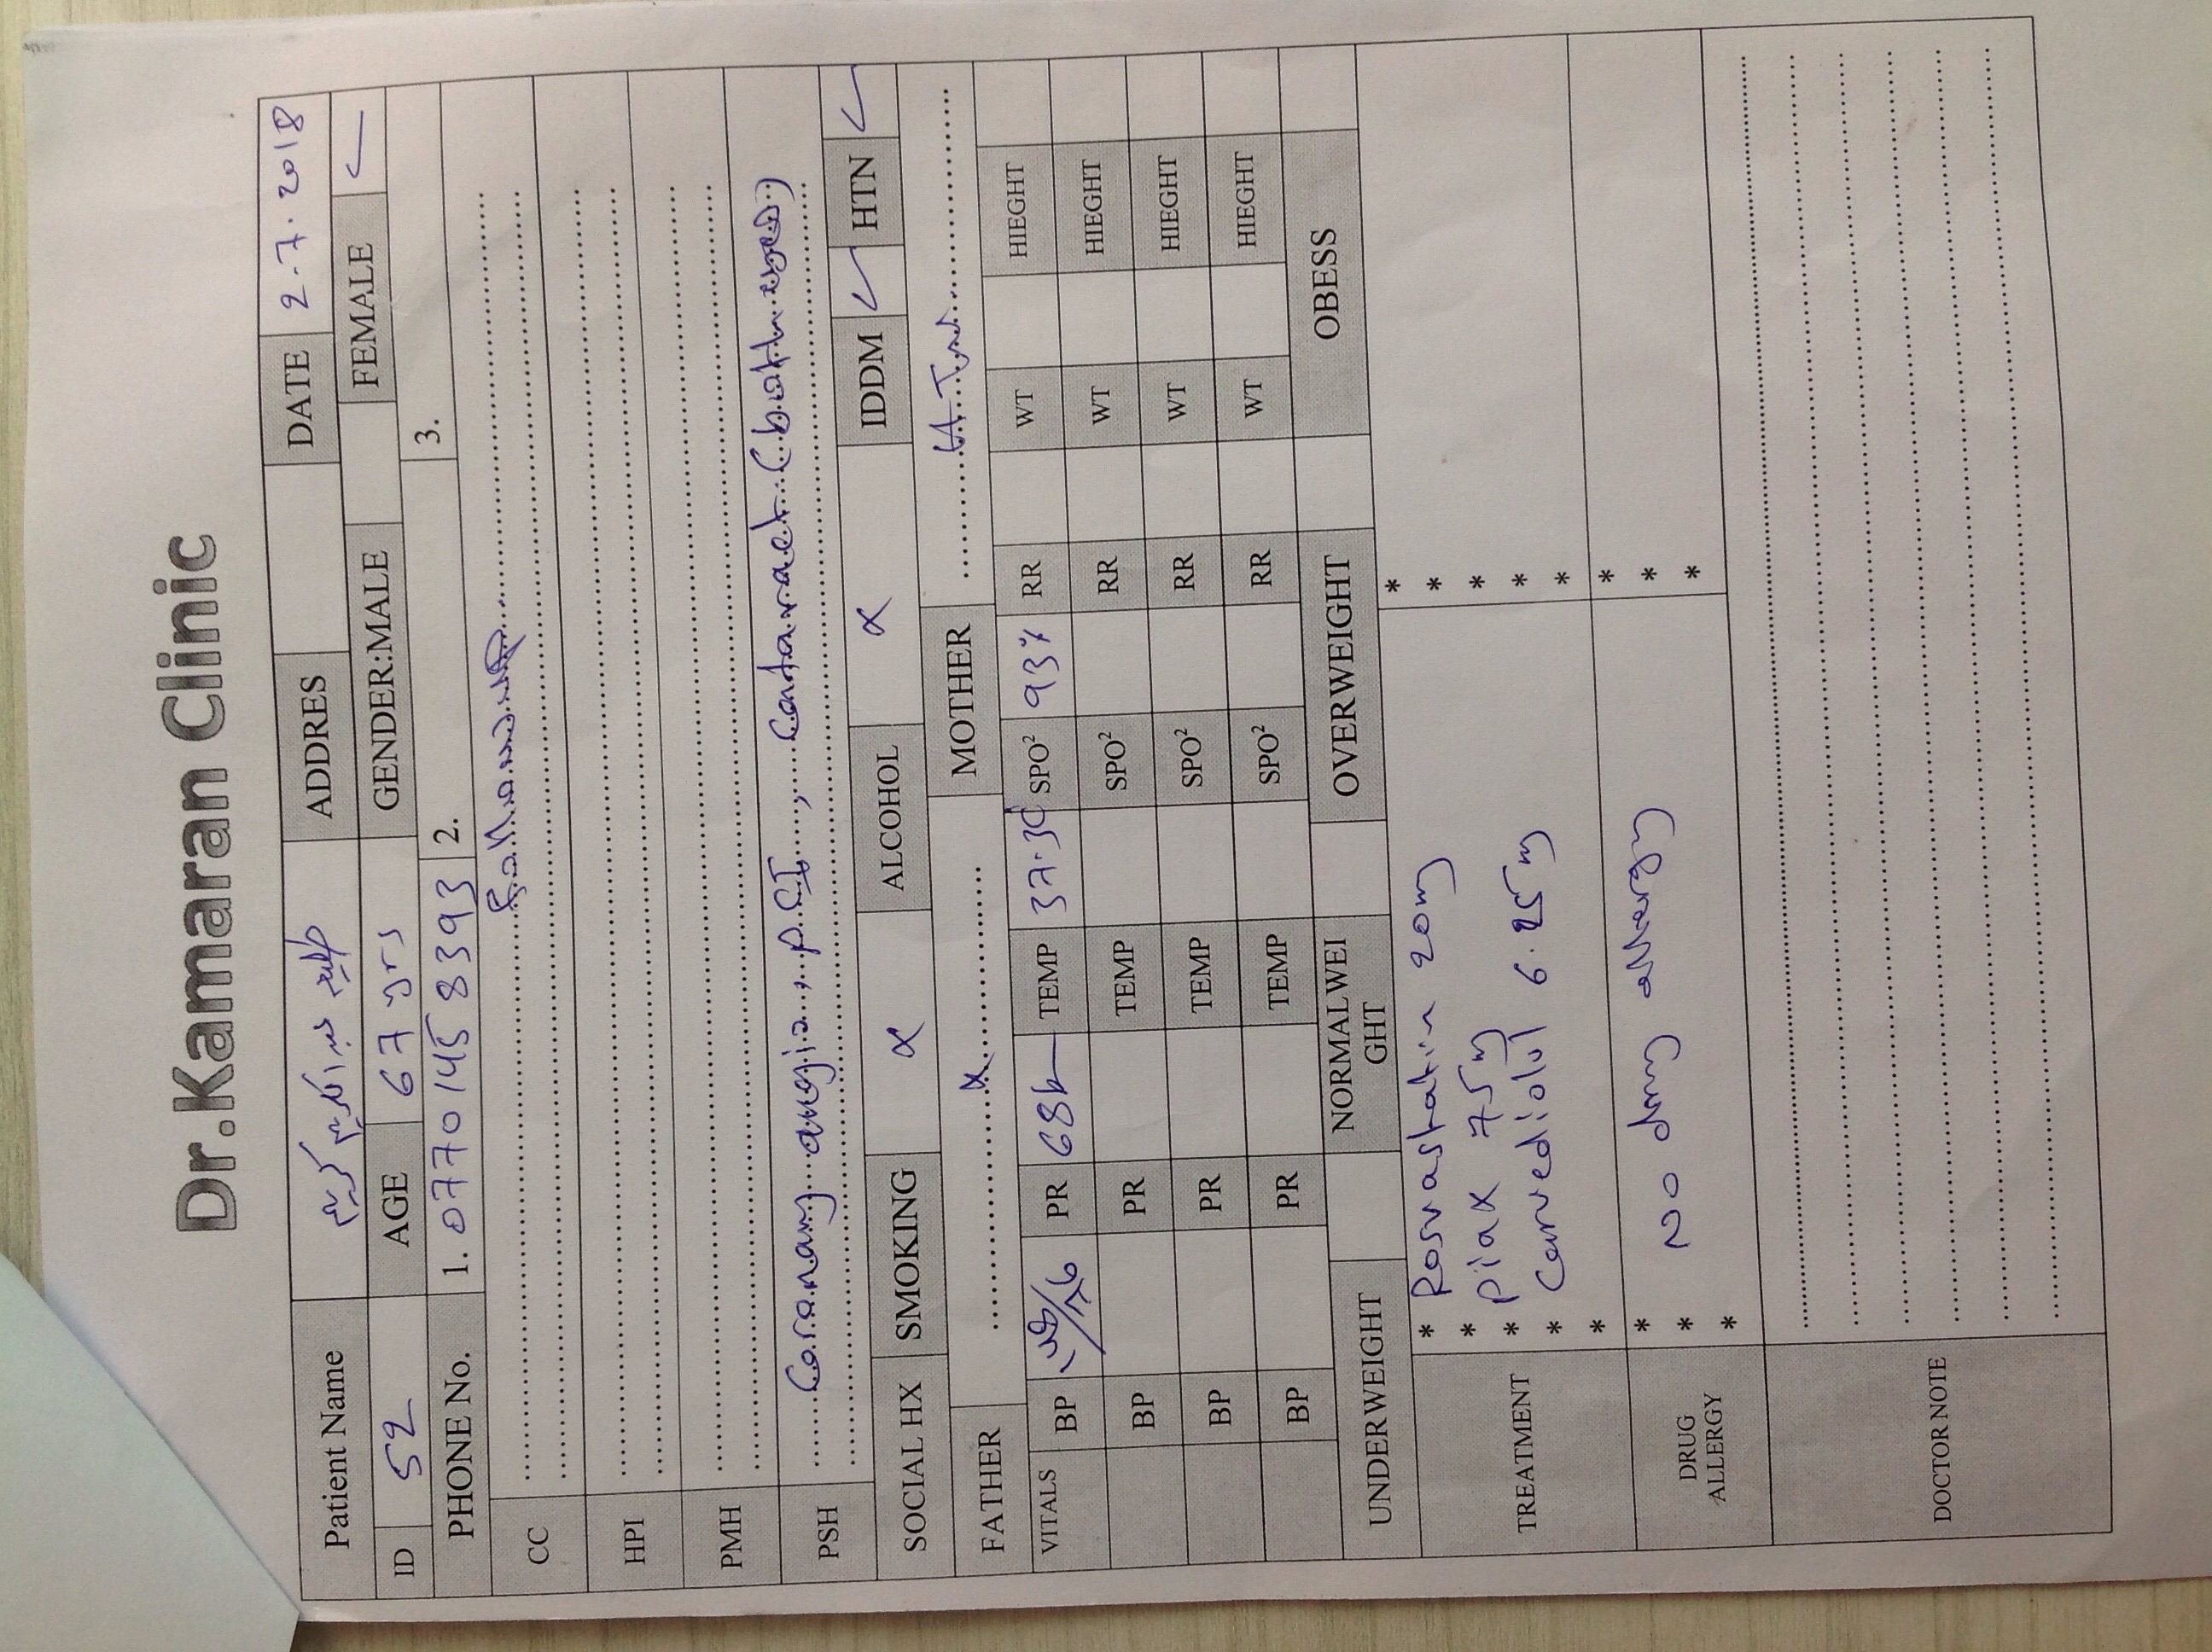 Dr.Kamaran Clinic
Patient Name عبد الكريم كريم ADDRES DATE 2.7.2018
ID 52 AGE 67 yrs GENDER:MALE FEMALE ✓
PHONE No. 1. 0770 145 8393 2. 3.
CC
HPI
PMH
PSH Coronary angio, PCI, Catarract (both eyes)
SOCIAL HX SMOKING x ALCOHOL x IDDM ✓ HTN ✓
FATHER x MOTHER
VITALS BP PR 68 TEMP 37.3c SPO² 93% RR WT HIEGHT
BP PR TEMP SPO² RR WT HIEGHT
BP PR TEMP SPO² RR WT HIEGHT
BP PR TEMP SPO² RR WT HIEGHT
UNDERWEIGHT NORMALWEI
GHT OVERWEIGHT OBESS
TREATMENT
* Rosvastatin 20mg *
* Piax 75mg *
* Carvediolol 6.25mg *
* *
* *
DRUG
ALLERGY
* No drug allergy *
* *
* *
DOCTOR NOTE